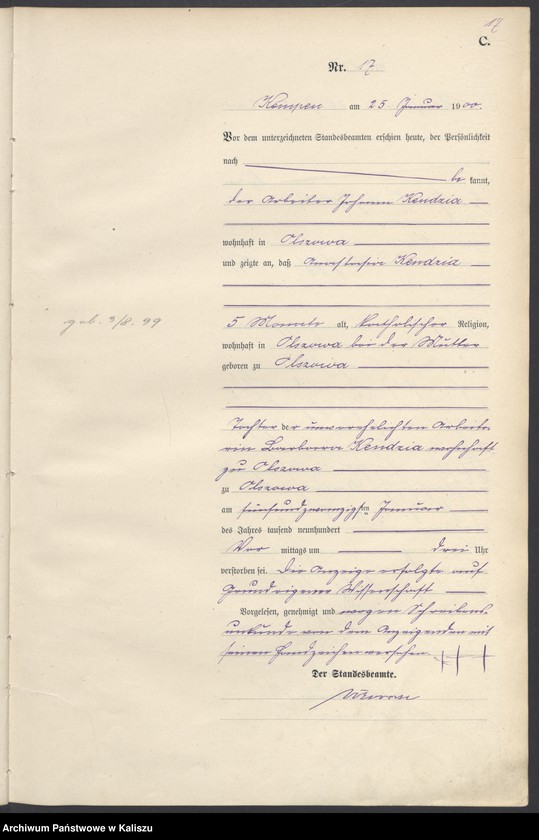 17
C.
Nr. 17
Kempen am 25 Januar 1900.
Vor dem unterzeichneten Standesbeamten erschien heute, der Persönlichkeit
nach
be kannt,
der Arbeiter Johann Kendzia
wohnhaft in Olszowa
und zeigte an, daß Anastasia Kendzia
geb. 9/8. 99
5 Monate alt, katholischer Religion,
wohnhaft in Olszowa bei der Mutter
geboren zu Olszowa
Tochter der unverehelichten Arbeite-
rin Barbara Kendzia wohnhaft
zu Olszowa
zu Olszowa
am fünfundzwanzigsten Januar
des Jahres tausend neunhundert
Vor mittags um drei Uhr
verstorben sei. Die Anzeige erfolgte auf
Grund eigener Wissenschaft
Vorgelesen, genehmigt und wegen Schreibens
unkunde von dem Anzeigenden mit
seinem Handzeichen versehen. +++
Der Standesbeamte.
Archiwum Państwowe w Kaliszu